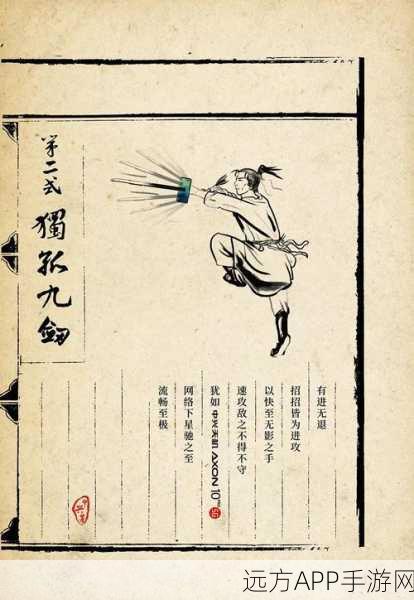 第二式
獨孤九劍
有进无退
招招皆为进攻
以快至无影之手
速攻敌之不得不守
犹如中兴天机AXON 10 Pro 5G
网络下星驰之至
流畅至极
远方APP手游网